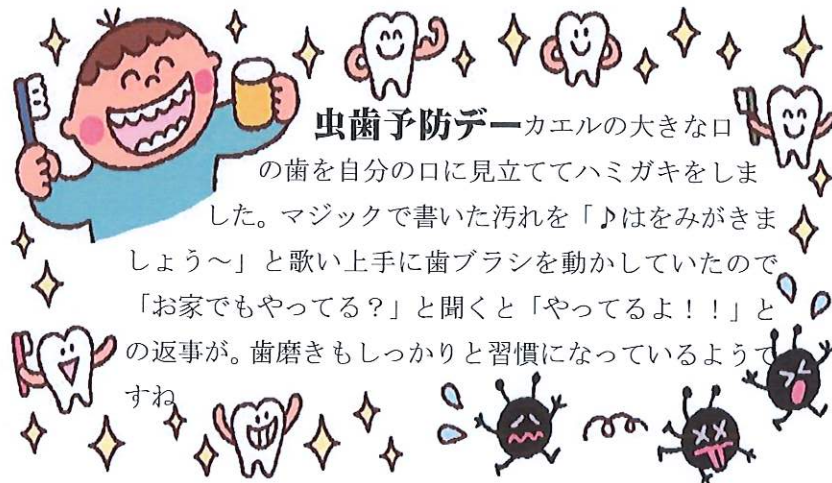 虫歯予防デーカエルの大きな口
の歯を自分の口に見立ててハミガキをしま
した。マジックで書いた汚れを「♪はをみがきま
しょう～」と歌い上手に歯ブラシを動かしていたので
「お家でもやってる？」と聞くと「やってるよ！！」と
の返事が。歯磨きもしっかりと習慣になっているようで
すね